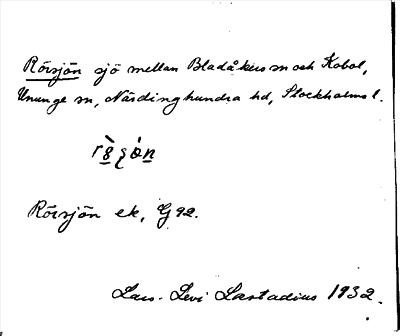 Rörsjön sjö mellan Bladåkers sn och Kobol,
Ununge sn, Närdinghundra hd, Stockholms l.
Rörsjön ek, G 92.
Lars-Levi Læstadius 1932.